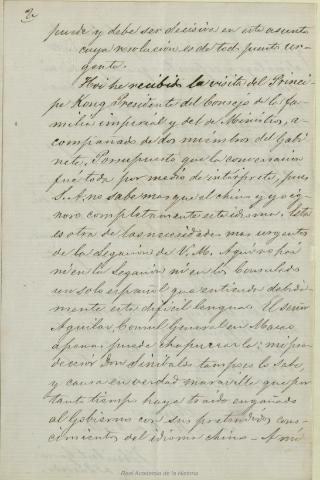 puede y debe ser decisiva en este asunto
cuya resolucion es de todo punto ur-
gente.
Hoi he recibido la visita del Princi-
pe Kong, Presidente del Consejo de la fa-
milia imperial y del de Ministros, a-
compañado de dos miembros del Gabi-
nete. Por supuesto que la conversacion
fué toda por medio de intérprete, pues
S. A. no sabe mas que el chino y yo ig-
noro completamente este idioma. Esta
es otra de las necesidades mas urgentes
de la Legacion de V. M. Aquí no hay
ni en la Legacion ni en los Consulados
un solo español que entienda debida-
mente esta dificil lengua. El señor
Aguilar, Consul General en Macao
apenas puede chapurrarla; mi pre-
decesor Don Sinibaldo tampoco lo sabe,
y causa en verdad maravilla que por
tanto tiempo haya traido engañado
al Gobierno con sus pretendidos cono-
cimientos del idioma chino. A mi
Real Academia de la Historia